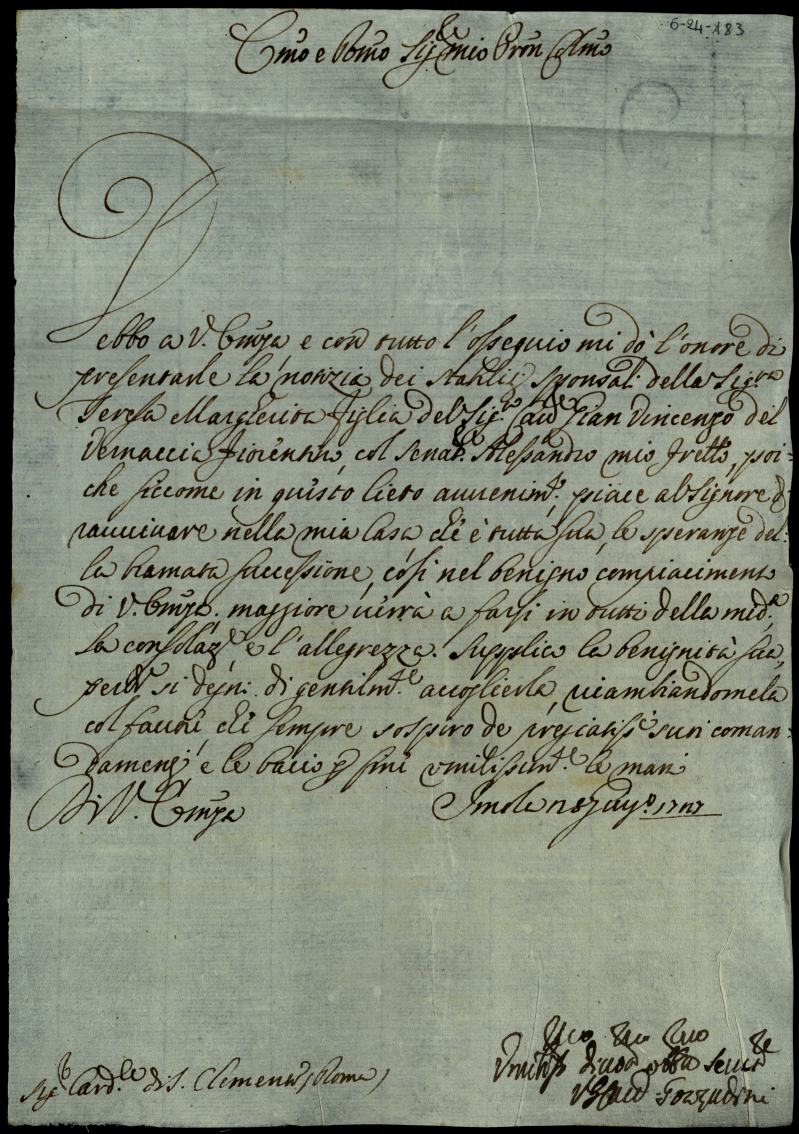 6-24-183
Emo e Rmo Sig.re mio Pron Colmo
Debbo a V. Emza e con tutto l'ossequio mi dò l'onore di
presentarle la notizia dei stabiliti sponsali della Sig.ra
Teresa Margherita figlia del Sig.re Gian Vincenzo del
Vernaccia Fiorentino, col Senat.re Alessandro mio frello, poi-
che siccome in questo lieto avvenim.to piace al Signore di
ravvivare nella mia Casa che è tutta sua, le speranze del-
la bramata successione, così nel benigno compiacimento
di V. Emza, maggiore verrà a farsi in tutti della med.a
la consolaz.e e l'allegrezza. Supplico la benignità sua,
si degni di gentilm.te accoglierla, ricambiandomela
col favore che sempre sospiro de pregiatiss.i suoi coman-
damenti, e le bacio p fine umilissim.te le mani
Di V. Emza Imola
Sig. Card.le di S. Clemente (Roma)
Umiliss divot obbl Servit.re
Gozzadini